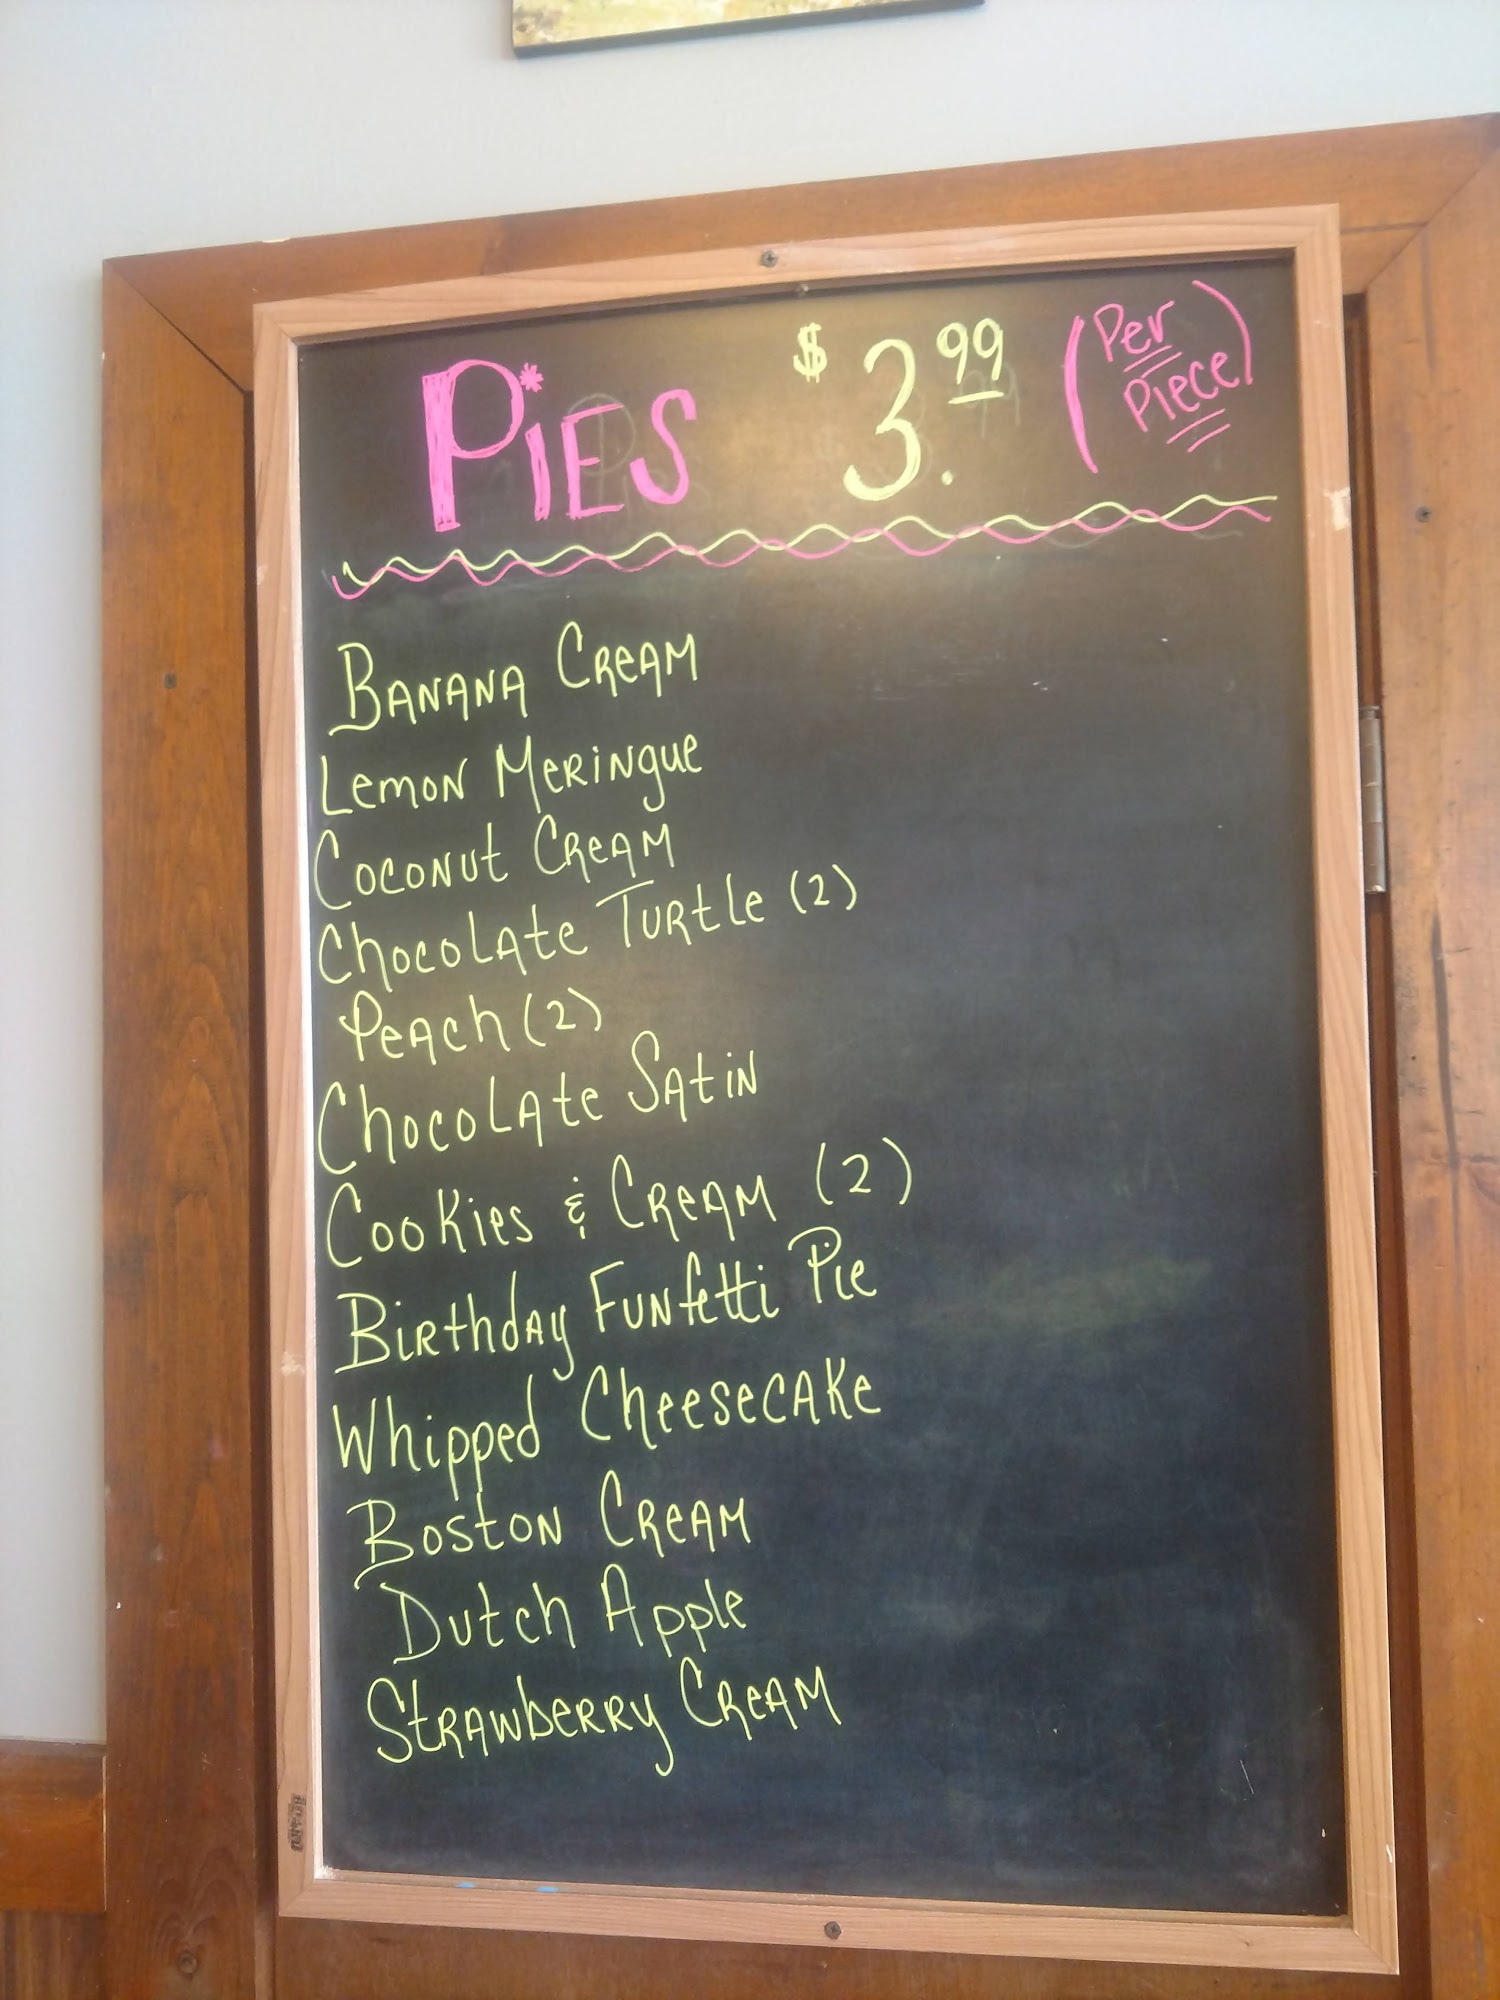 PiES $3.99 (Per Piece)
Banana Cream
Lemon Meringue
Coconut Cream
Chocolate Turtle (2)
Peach (2)
Chocolate Satin
Cookies & Cream (2)
Birthday Funfetti Pie
Whipped Cheesecake
Boston Cream
Dutch Apple
Strawberry Cream